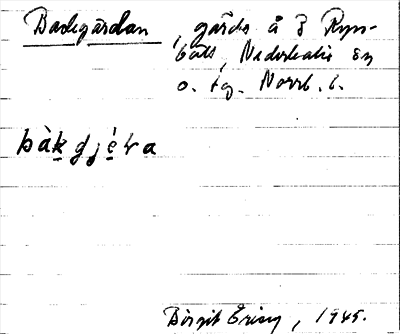 Backgärdan, gärde å 3 Ryss-
bält, Nederkalix sn
o. tg. Norrb. l.
bàkgjḙ́ḷa
Birgit Ering, 1945.